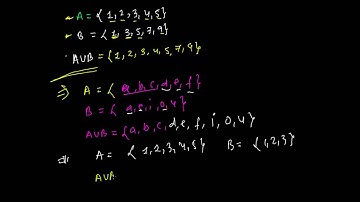 A = {1, 2, 3, 4, 5}
B = {1, 3, 5, 7, 9}
AUB = {1, 2, 3, 4, 5, 7, 9}
A = { a, b, c, d, e, f }
B = { a, e, i, o, 4 }
AUB = {a, b, c, d, e, f, i, o, 4 }
A = { 1, 2, 3, 4, 5 } B = { 1, 2, 3 }
AUB